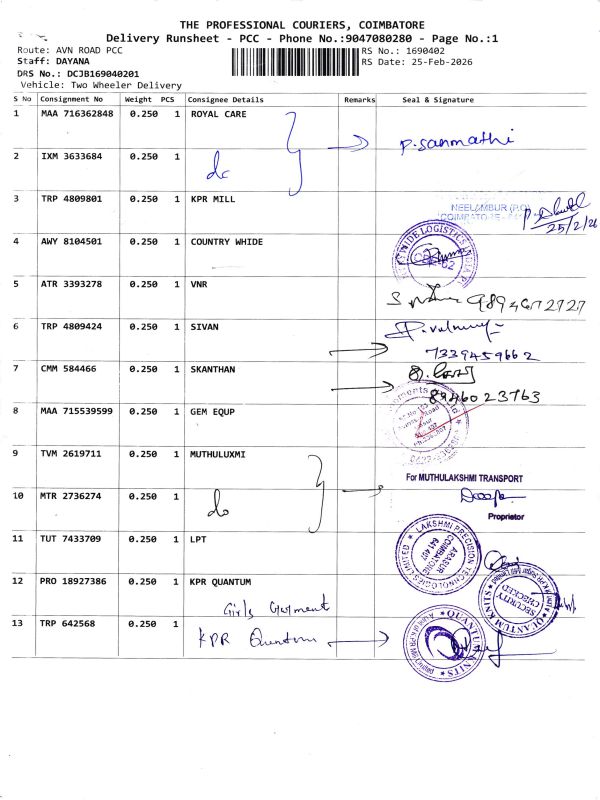 THE PROFESSIONAL COURIERS, COIMBATORE
Delivery Runsheet - PCC - Phone No.:9047080280 - Page No.:1
Route: AVN ROAD PCC RS No.: 1690402
Staff: DAYANA RS Date: 25-Feb-2026
DRS No.: DCJB169040201
Vehicle: Two Wheeler Delivery
S No Consignment No Weight PCS Consignee Details Remarks Seal & Signature
1 MAA 716362848 0.250 1 ROYAL CARE
P. Sanmathi
2 IXM 3633684 0.250 1
do
3 TRP 4809801 0.250 1 KPR MILL
NEELAMBUR (P.O)
COIMBATORE
25/2/26
4 AWY 8104501 0.250 1 COUNTRY WHIDE
5 ATR 3393278 0.250 1 VNR
9894672727
6 TRP 4809424 0.250 1 SIVAN
7339459662
7 CMM 584466 0.250 1 SKANTHAN
8946023763
8 MAA 715539599 0.250 1 GEM EQUP
9 TVM 2619711 0.250 1 MUTHULUXMI
For MUTHULAKSHMI TRANSPORT
10 MTR 2736274 0.250 1
do
Proprietor
11 TUT 7433709 0.250 1 LPT
LAKSHMI PRECISION TECHNOLOGIES LIMITED
ARASUR
COIMBATORE
641 407
12 PRO 18927386 0.250 1 KPR QUANTUM
Girls Garment
SECURITY
CHECKED
QUANTUM KNITS
13 TRP 642568 0.250 1
KPR Quantum
QUANTUM KNITS